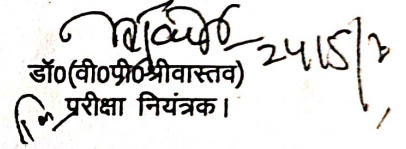 24/5/
डॉ0(वी0प्री0श्रीवास्तव)
परीक्षा नियंत्रक।